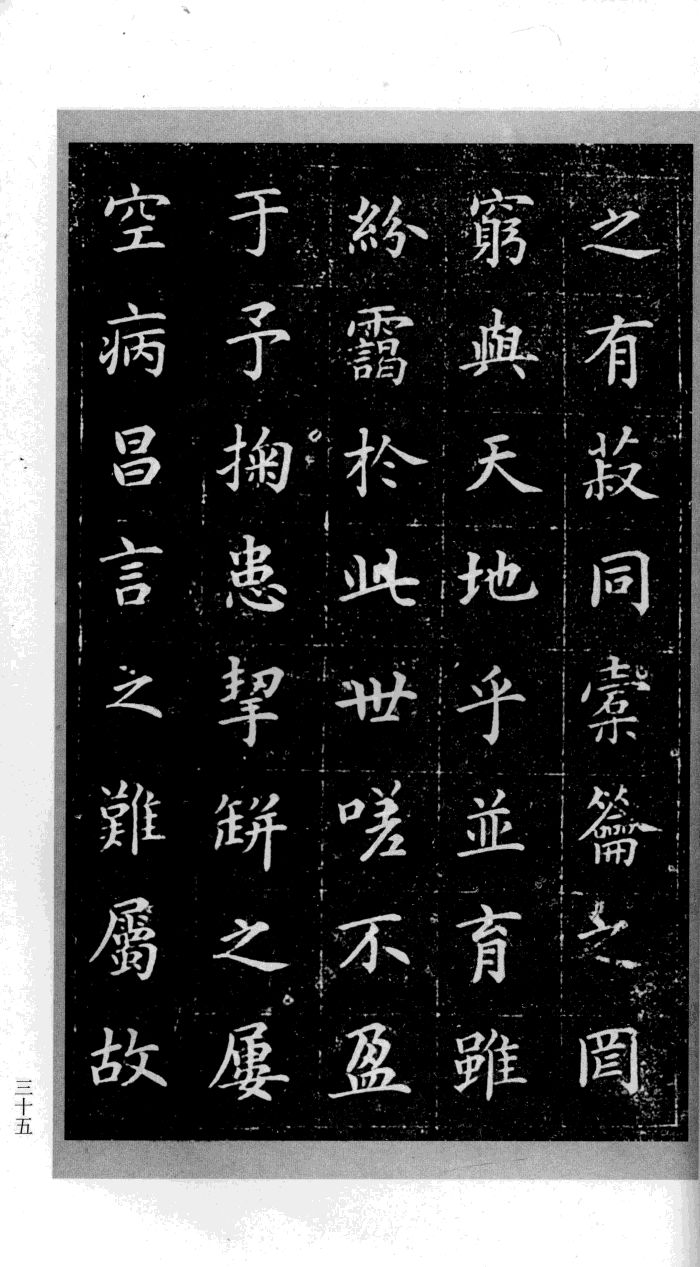 之有菽同橐籥之罔
窮與天地乎並育雖
紛靄於此世嗟不盈
于予掬患挈缾之屢
空病昌言之難屬故
三十五